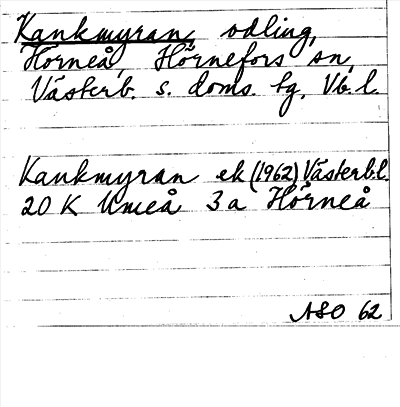 Kankmyran, odling,
Hörneå, Hörnefors sn,
Västerb. s. doms. tg, Vb. l.
Kankmyran ek (1962) Västerb.l.
20 K Umeå 3a Hörneå
ASO 62